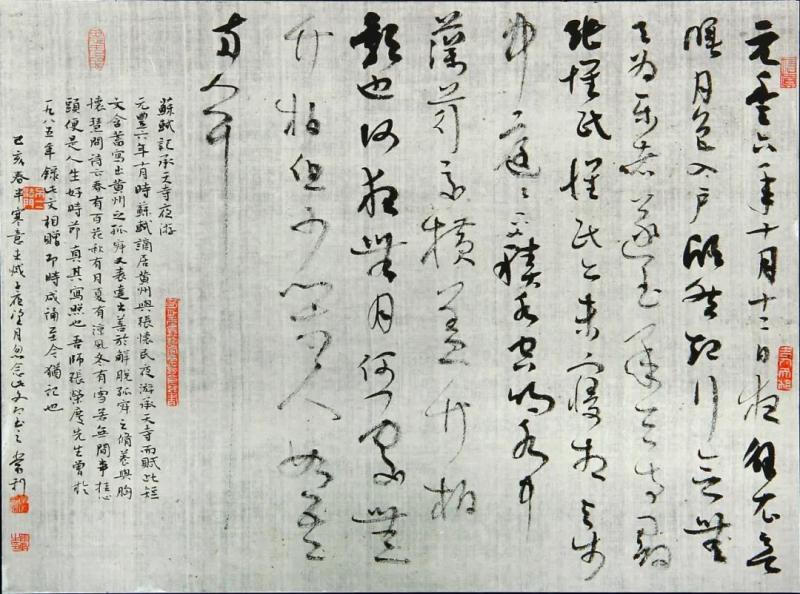 元豐六年十月十二日夜解衣欲
睡月色入戶欣然起行念無
与為樂者遂至承天寺尋
張懷民懷民亦未寢相與步
中庭庭下如積水空明水中
藻荇交橫蓋竹柏
影也何夜無月何處無
竹柏但少閑人如吾
兩人耳
蘇軾記承天寺夜游
元豐六年十月時蘇軾謫居黃州與張懷民夜游承天寺而賦此短
文含蓄寫出黃州之孤寂又表達出善於解脫孤寂之脩養與胸
懷慧開詩云春有百花秋有月夏有涼風冬有雪若無閒事挂心
頭便是人生好時節真其寫照也吾師張榮慶先生曾於
一九八五年錄此文相贈即時成誦至今猶記也
己亥春半寒意未減之夜望月忽念此文即書之 常利